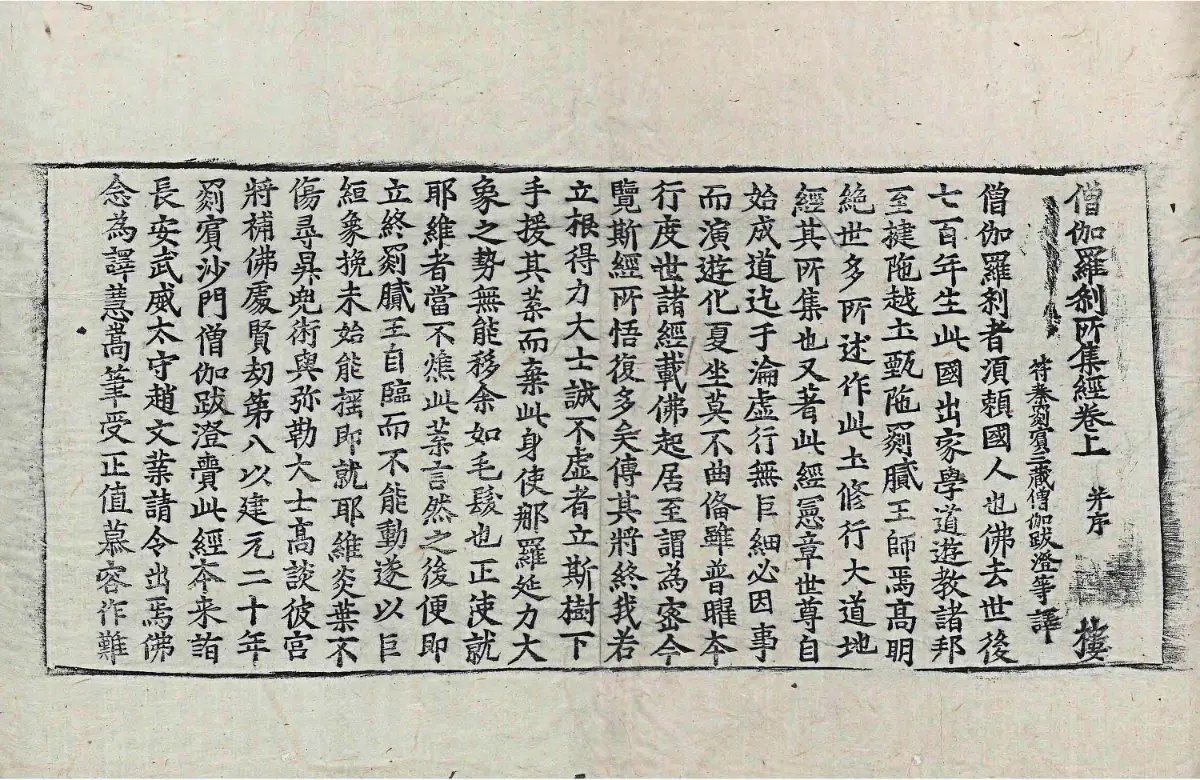 僧伽羅刹所集經卷上 并序 樓
符秦罽賓三藏僧伽跋澄等譯
僧伽羅刹者湏頼國人也佛去世後
七百年生此國出家學道遊教諸邦
至揵陁越土甄陁罽膩王師焉髙明
絶世多所述作此土修行大道地
經其所集也又著此經憲章世尊自
始成道迄于淪虚行無巨細必因事
而演遊化夏坐莫不曲俻雖普曜夲
行度世諸經載佛起居至謂為密今
覽斯經所悟復多矣傳其將終我若
立根得力大士誠不虚者立斯樹下
手援其葉而棄此身使那羅延力大
象之勢無能移余如毛髮也正使就
耶維者當不燋此葉言然之後便即
立終罽膩王自臨而不能動遂以巨
絙象挽未始能摇即就耶維炎葉不
傷尋昇兜術與弥勒大士髙談彼宫
將補佛處賢劫第八以建元二十年
罽賓沙門僧伽跋澄賷此經夲来詣
長安武威太守趙文業請令出焉佛
念為譯慧嵩筆受正值慕容作難